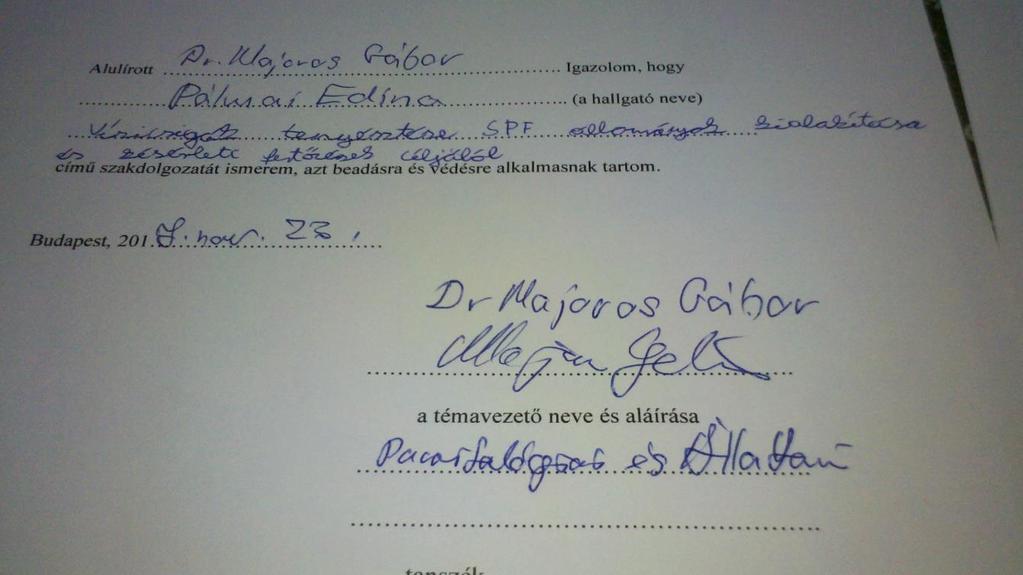 Alulírott Dr. Majoros Gábor Igazolom, hogy
Pálmai Edina (a hallgató neve)
Vízicsigák tenyésztése SPF állományok kialakítása
és kísérleti fertőzések céljából
című szakdolgozatát ismerem, azt beadásra és védésre alkalmasnak tartom.
Budapest, 201 . nov. 23.
Dr Majoros Gábor
a témavezető neve és aláírása
Parazitológiai és Állattani
tanszék